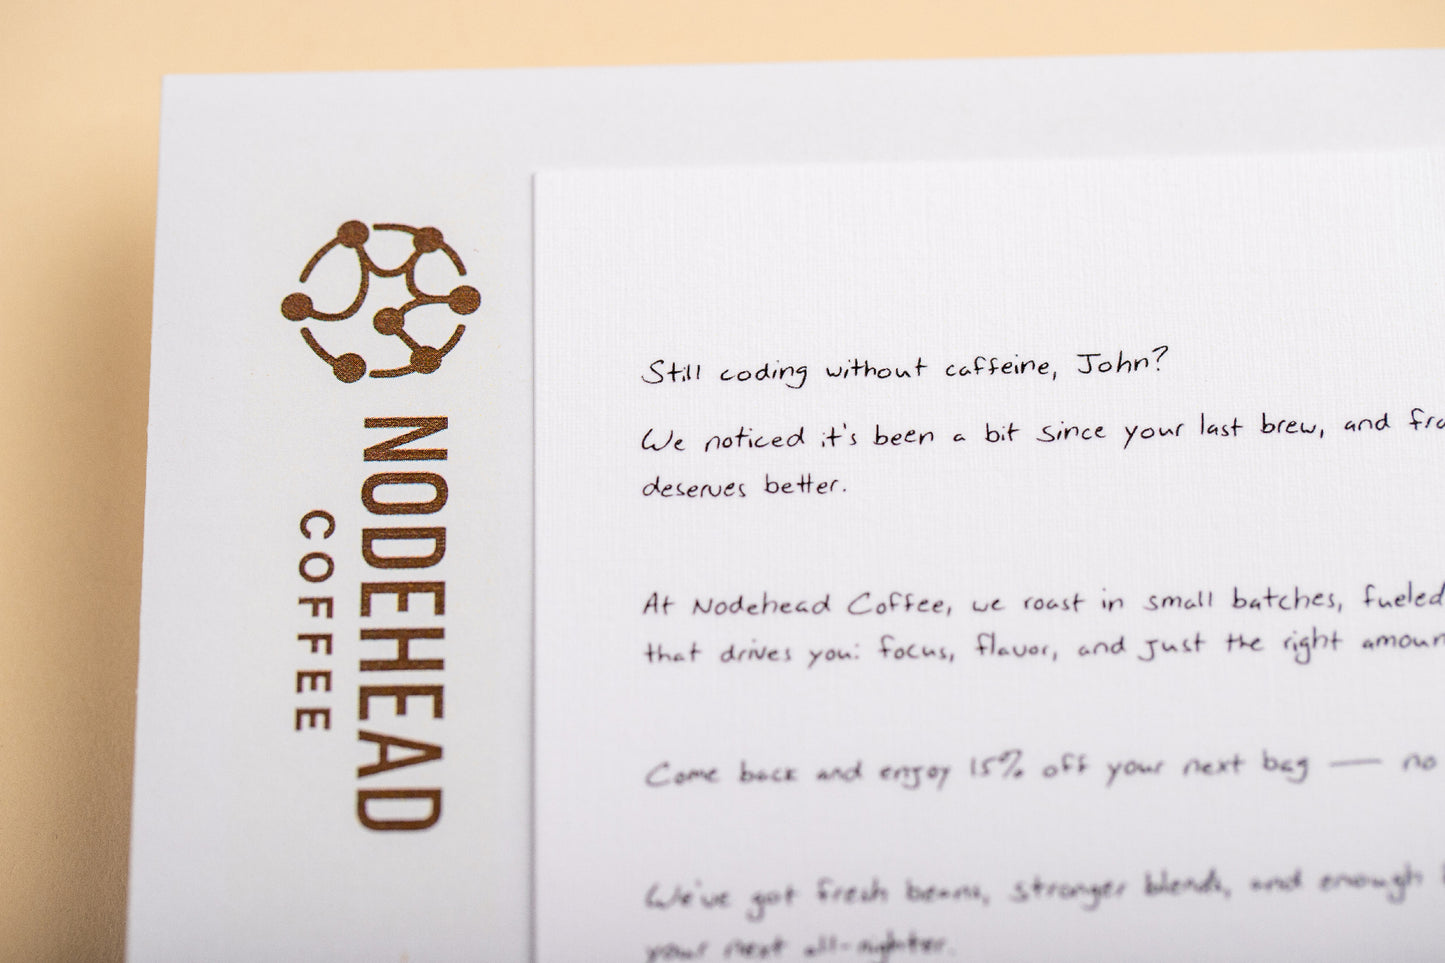 NODEHEAD
COFFEE
Still coding without caffeine, John?
We noticed it's been a bit since your last brew, and
deserves better.
At Nodehead Coffee, we roast in small batches, fueled
that drives you: focus, flavor, and just the right
Come back and enjoy 15% off your next bag — no
We've got fresh beans, stronger blends, and enough
your next all-nighter.